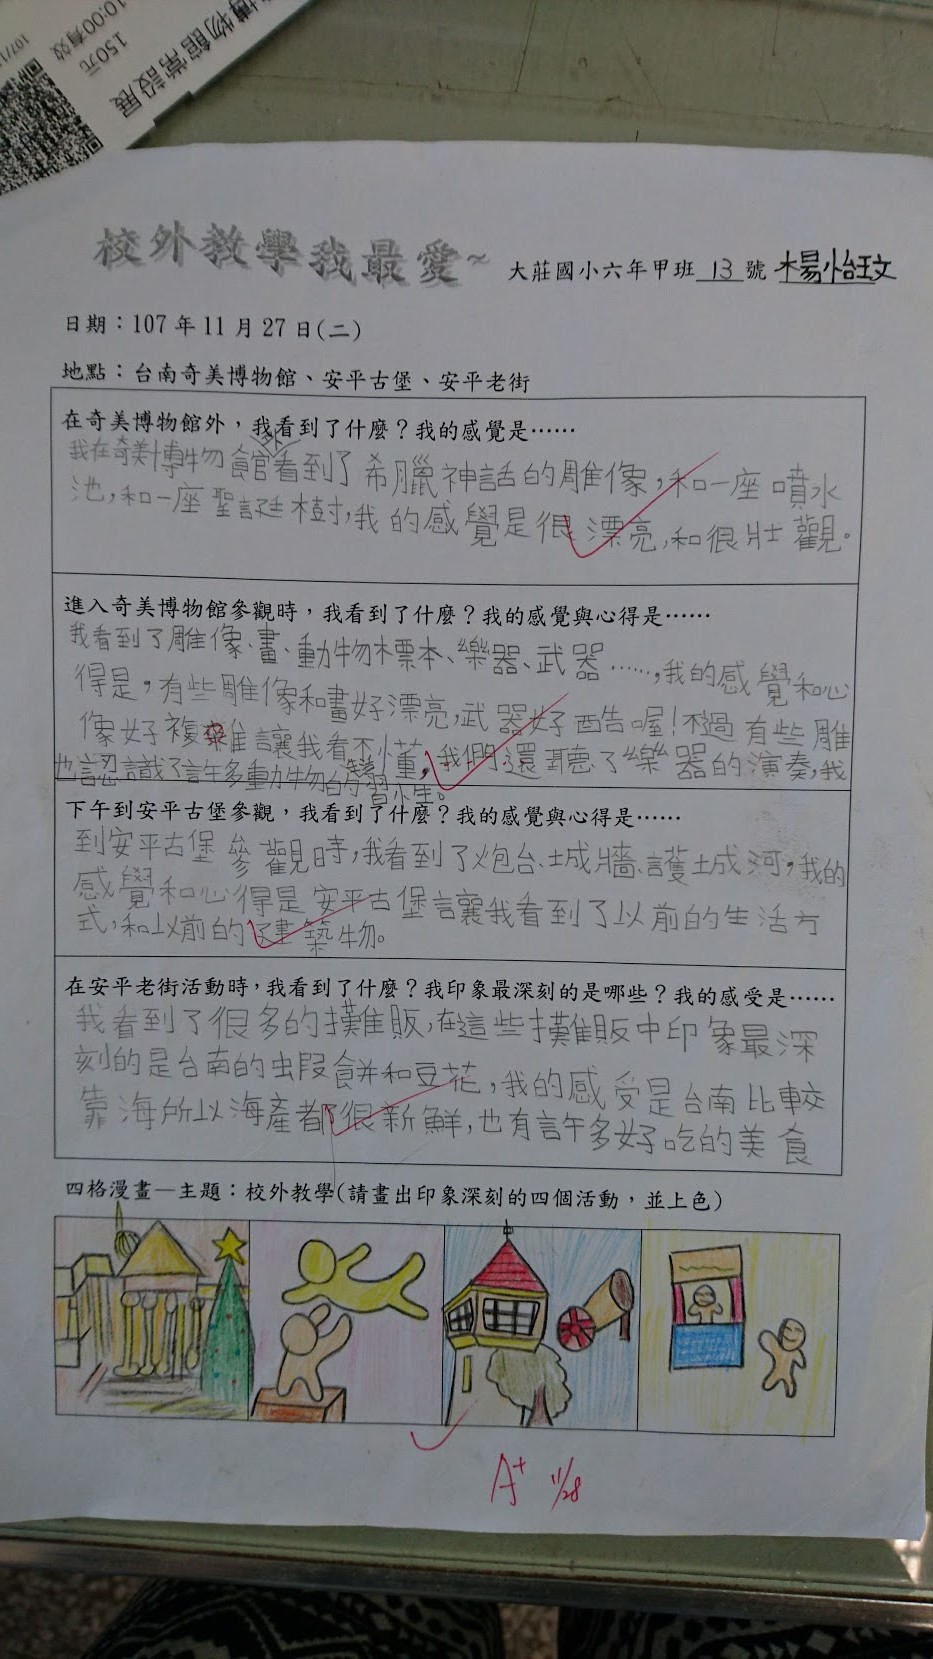 博物館常設展
150元
10:00有效
校外教學我最愛~
大莊國小六年甲班 13 號 楊怡玟
日期：107年11月27日(二)
地點：台南奇美博物館、安平古堡、安平老街
在奇美博物館外，我看到了什麼？我的感覺是……
我在奇美博物館外看到了希臘神話的雕像，和一座噴水
池，和一座聖誕樹，我的感覺是很漂亮，和很壯觀。
進入奇美博物館參觀時，我看到了什麼？我的感覺與心得是……
我看到了雕像、畫、動物標本、樂器、武器……，我的感覺和心
得是，有些雕像和畫好漂亮，武器好酷喔！不過有些雕
像好複雜讓我看不懂，我們還聽了樂器的演奏，我
也認識了許多動物的習性。
下午到安平古堡參觀，我看到了什麼？我的感覺與心得是……
到安平古堡參觀時，我看到了炮台、城牆、護城河，我的
感覺和心得是安平古堡讓我看到了以前的生活方
式，和以前的建築物。
在安平老街活動時，我看到了什麼？我印象最深刻的是哪些？我的感受是……
我看到了很多的攤販，在這些攤販中印象最深
刻的是台南的蝦餅和豆花，我的感受是台南比較
靠海所以海產都很新鮮，也有許多好吃的美食
四格漫畫—主題：校外教學(請畫出印象深刻的四個活動，並上色)
A+ 11/28